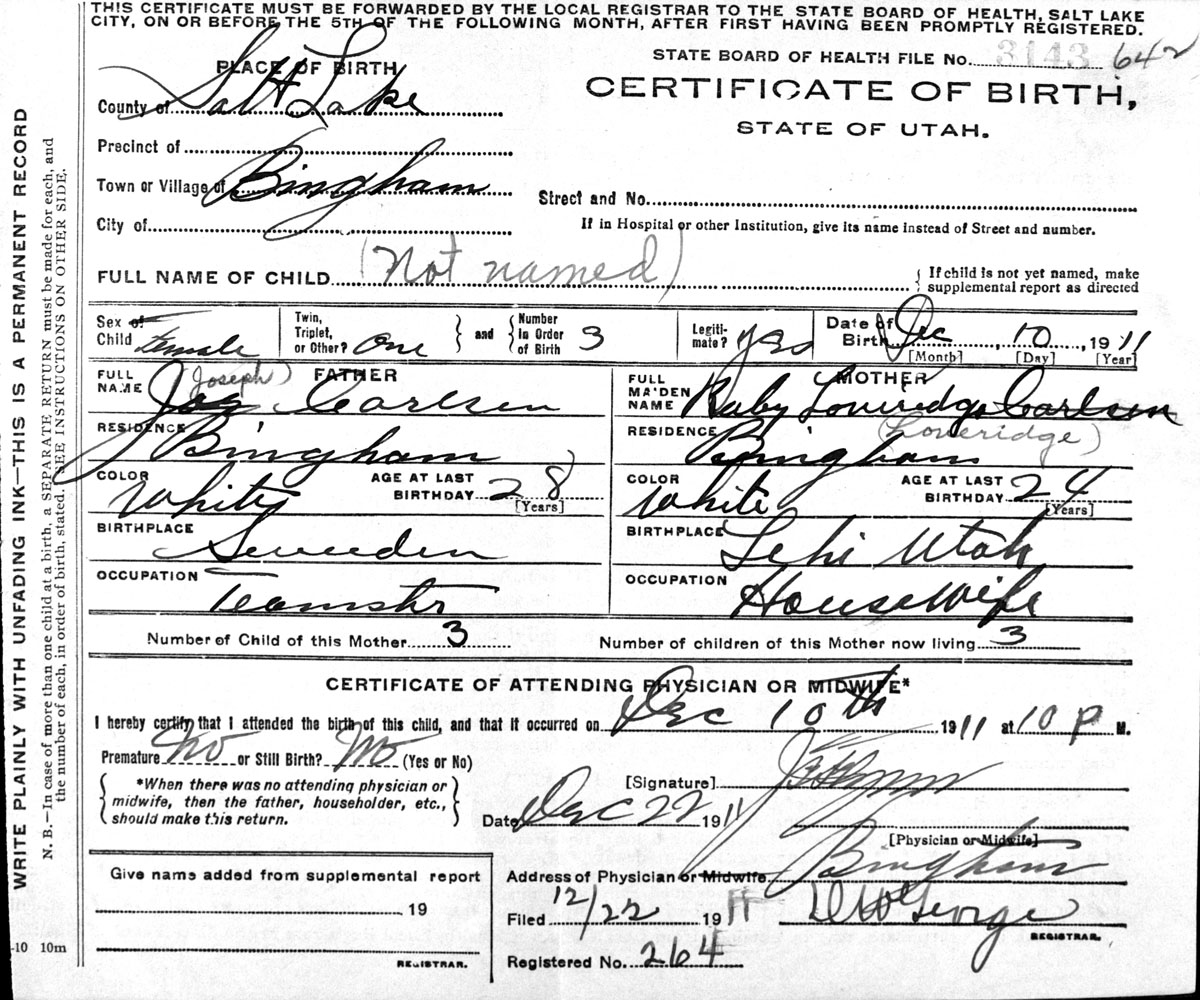 THIS CERTIFICATE MUST BE FORWARDED BY THE LOCAL REGISTRAR TO THE STATE BOARD OF HEALTH, SALT LAKE
CITY, ON OR BEFORE THE 5TH OF THE FOLLOWING MONTH, AFTER FIRST HAVING BEEN PROMPTLY REGISTERED.
WRITE PLAINLY WITH UNFADING INK—THIS IS A PERMANENT RECORD
N. B.—In case of more than one child at a birth, a SEPARATE RETURN must be made for each, and
the number of each, in order of birth, stated. SEE INSTRUCTIONS ON OTHER SIDE.
STATE BOARD OF HEALTH FILE No. 3143 642
PLACE OF BIRTH
CERTIFICATE OF BIRTH,
STATE OF UTAH.
County of Salt Lake
Precinct of
Town or Village of Bingham
Street and No.
City of
If in Hospital or other Institution, give its name instead of Street and number.
FULL NAME OF CHILD (Not named)
{ If child is not yet named, make
supplemental report as directed
Sex of Child Female
Twin, Triplet, or Other? One } and { Number in Order of Birth 3
Legitimate? Yes
Date of Birth Dec 10, 1911
[Month] [Day] [Year]
FATHER
FULL NAME Jos (Joseph) Carlsen
RESIDENCE Bingham
COLOR White AGE AT LAST BIRTHDAY 28 [Years]
BIRTHPLACE Sweeden
OCCUPATION Teamstr
MOTHER
FULL MAIDEN NAME Ruby Loveridge Carlsen
(Loveridge)
RESIDENCE Bingham
COLOR White AGE AT LAST BIRTHDAY 24 [Years]
BIRTHPLACE Lehi Utah
OCCUPATION HouseWife
Number of Child of this Mother 3 Number of children of this Mother now living 3
CERTIFICATE OF ATTENDING PHYSICIAN OR MIDWIFE*
I hereby certify that I attended the birth of this child, and that it occurred on Dec 10th 1911 at 10 P M.
Premature No or Still Birth? No (Yes or No)
{ *When there was no attending physician or
midwife, then the father, householder, etc.,
should make this return. }
[Signature]
Date Dec 22 1911
[Physician or Midwife]
Address of Physician or Midwife Bingham
Give name added from supplemental report
19
REGISTRAR.
Filed 12/22 1911 George
REGISTRAR.
Registered No. 264
-10 10m